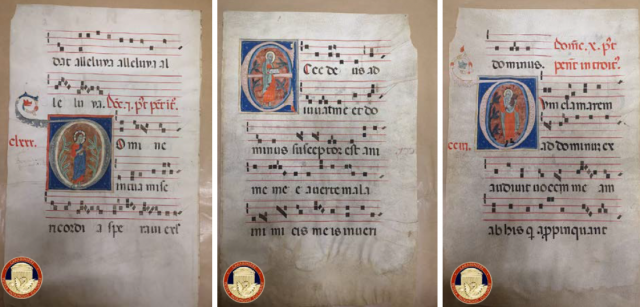 dat alleluya alleluya al
le lu ya.
clxxx.
Domi ne
in tua mise
ricordi a spe raui exs
Ecce de us ad
iuuat me et do
minus susceptor est ani
me me e auerte mala
mi mi cis me is in ueri
dominus. x.
Cum clamarem
ad dominum ex
audiuit uocem me am
ab his q appinquant